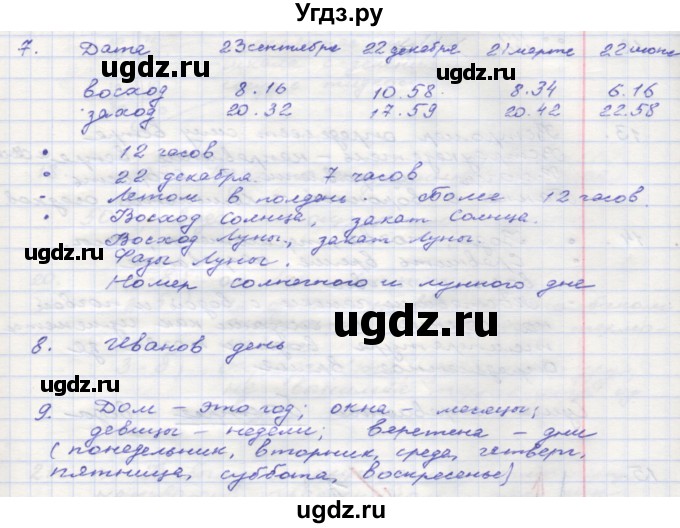 Угдз.ру
7. Дата 23 сентября 22 декабря 21 марта 22 июня
ugdz.ru ugdz.ru ugdz.ru
восход 8.16 10.58. 8.34 6.16
заход 20.32 17.59 20.42 22.58
• 12 часов
• 22 декабря. 7 часов
- Летом в полдень. более 12 часов.
• Восход Солнца, закат Солнца.
ugdz.ru ugdz.ru
Восход Луны, закат Луны.
Фазы Луны.
Номер солнечного и лунного дня
ugdz.ru
8. Иванов день
ugdz.ru
ugdz.ru
9. Дом – это год; окна – месяцы;
девицы – недели; веретена – дни
(понедельник, вторник, среда, четверг,
пятница, суббота, воскресенье)
ugdz.ru ugdz.ru